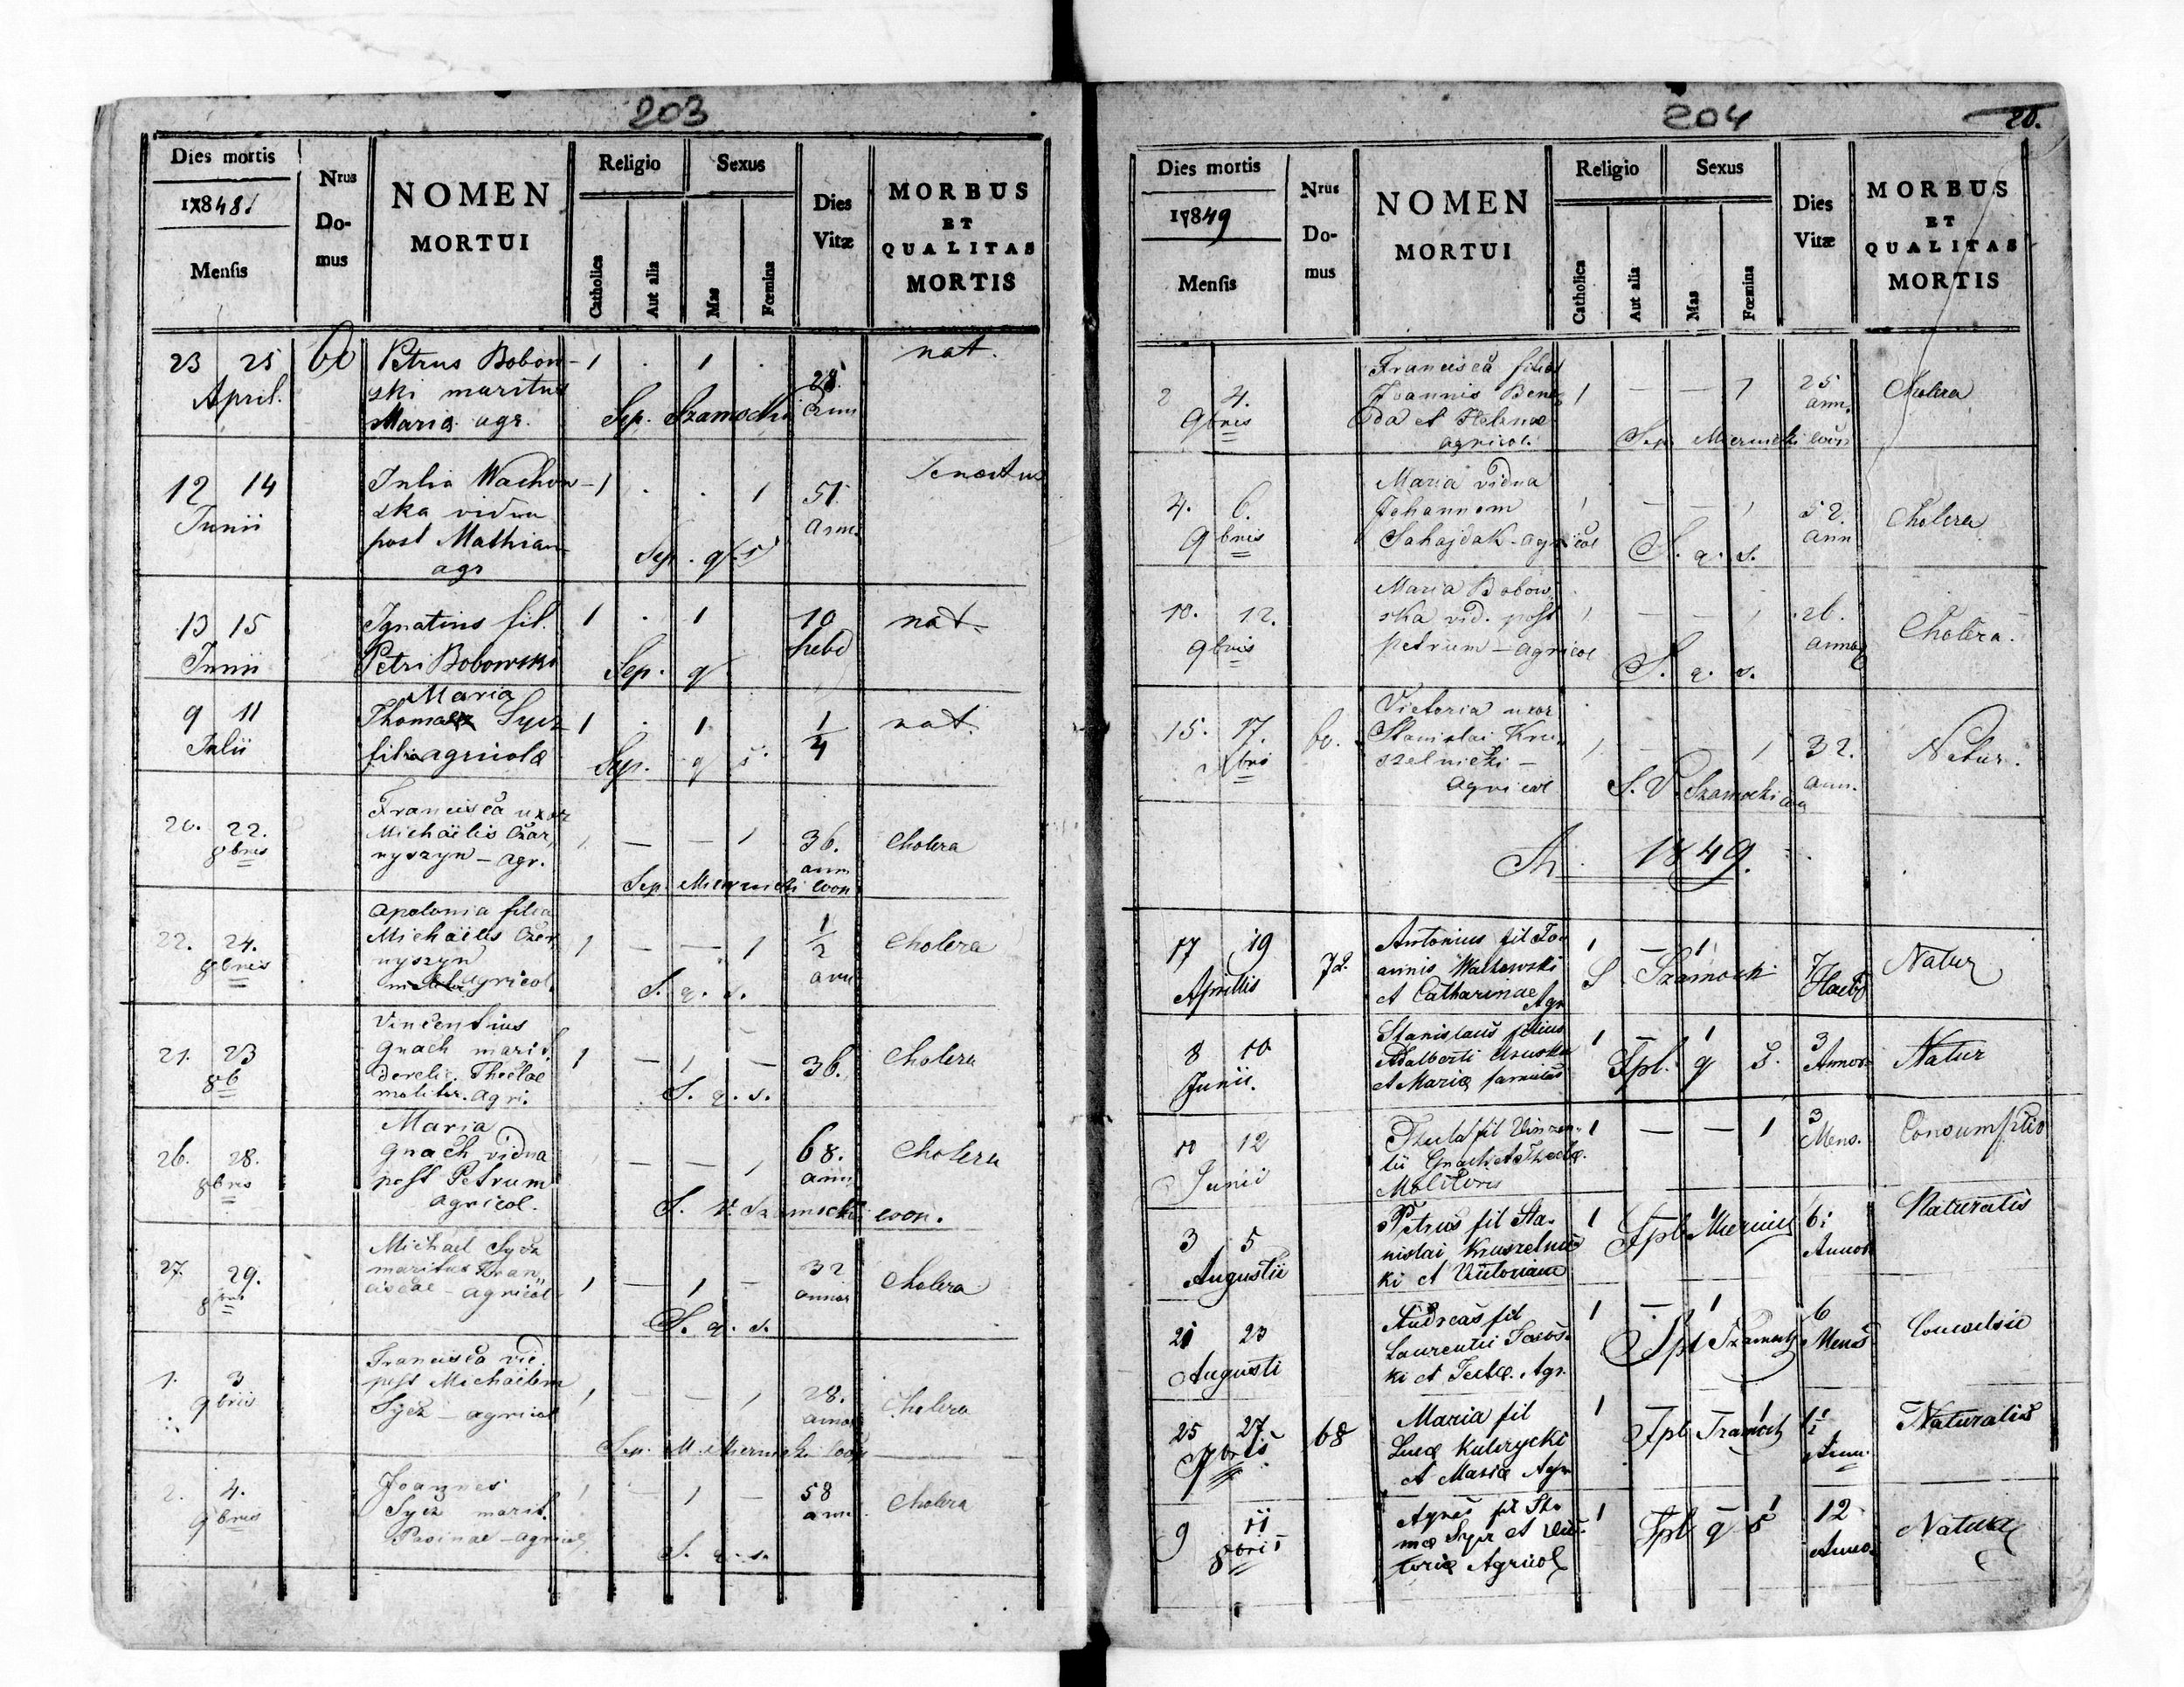 203
Dies mortis
1848.
Mensis
Nrus Domus
NOMEN MORTUI
Religio
Catholica
Aut alia
Sexus
Mas
Fœmina
Dies Vitæ
MORBUS ET QUALITAS MORTIS
23 25 Petrus Bobow- 1 . 1 . 28 nat.
April. ski maritus ann
Maria agr. Sep. Szamocki
12 14 Julia Wachow- 1 . . 1 51. Senectus
Junii ska vidua ann.
post Mathiam Sep. q. s
agr
13 15 Ignatius fil. 1 . 1 10 nat.
Junii Petri Bobowski Sep. q hebd
Maria
9 11 Thomae Sycz 1 . 1 1/4 nat.
Julii filia agricolæ Sep. q s.
Francisca uxor
20. 22. Michäelis Czar, 1 — — 1 36. Cholera
8bris nyszyn — agr. ann
Sep. Miernicki coop
Apolonia filia
22. 24. Michäelis Czer 1 — — 1 1/2 Cholera
8bris nyszyn ann
agricol. S. q. s.
Vincentius
21. 23 Gnach marit. 1 — 1 — 36. Cholera
8b derelic. Theclae
molitor. agri. S. q. s.
Maria
26. 28. Gnach vidua — — 1 68. Cholera
8bris post Petrum ann
agricol. S. V. Szamocki coop.
Michael Sycz
27. 29. maritus Fran, 1 — 1 — 32 Cholera
8bris ciscae — agricol annor
S. q. s.
Francisca vid.
1. 3 post Michäelem
9bris Sycz — agricol 1 — — 1 28. Cholera
annor
Sep. M. Miernicki coop
2. 4. Joannes 1 — 1 — 58 Cholera
9bris Sycz marit. ann
agricol
S. q. s.
204
20.
Dies mortis
1849
Mensis
Nrus Domus
NOMEN MORTUI
Religio
Catholica
Aut alia
Sexus
Mas
Fœmina
Dies Vitæ
MORBUS ET QUALITAS MORTIS
Francisca filia
2 4. Joannis Bene 1 — — 1 25 Cholera
9bris da et Helenae ann.
agricol. Sep. Miernicki coop
Maria vidua
4. 6. Johannem 1 — — 1 52. Cholera
9bris Sahajdak — agricol ann
S. q. s.
Maria Bobow
10. 12. ska vid. post 1 — — 1 26. Cholera.
9bris petrum — agricol annor
S. q. s.
Victoria uxor
15. 17. 60. Stanislai Kru, 1 — 1 32. Natur.
Xbris szelnicki — ann.
agricol S. V. Szamocki
1849.
17 19 72. Antonius fil Jo- 1 — 1 7 Natur
Aprilis annis Walkowski S Szamocki Haebd
et Catharinae Agr
8 10 Stanislaus filius 1 1 3 Natur
Junii. Adalberti Spl. q s. Annor
et Mariæ famulus
10 12 Thecla fil Vinzen- 1 — — 1 3 Consumptio
Junii tii Gnach et Theclæ. Mens.
Molitoris
3 5 Petrus fil Sta- 1 Spl Miernick 6 Naturalis
Augustii nislai Kruszelnic Annor
ki et Victoriæ
21 23 Andreas fil 1 — 1 6
Augusti Laurentii Spl Szamocki Mens
ki et Teclæ. Agr.
25 27. 68 Maria fil 1 1 Naturalis
7bris Lucæ Kulczycki Spl Szamock Ann.
et Mariæ Agr
9 11 Agnes fil Tho 1 1 12 Natural
8bris mæ Sycz et Vic- Spl q s Anno.
toriæ Agricol